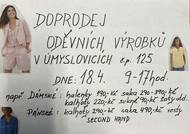 DOPRODEJ
ODĚVNÍCH VÝROBKŮ
V ÚMYSLOVICÍCH č.p. 125
DNE: 18.4. 9-17hod.
např. DÁMSKÉ: halenky 190,-Kč saka 290-390,-Kč
kalhoty 220,-Kč sukně 190,-Kč šaty atd.
PÁNSKÉ: kalhoty 290,-Kč saka 490,-Kč vesty
SECOND HAND